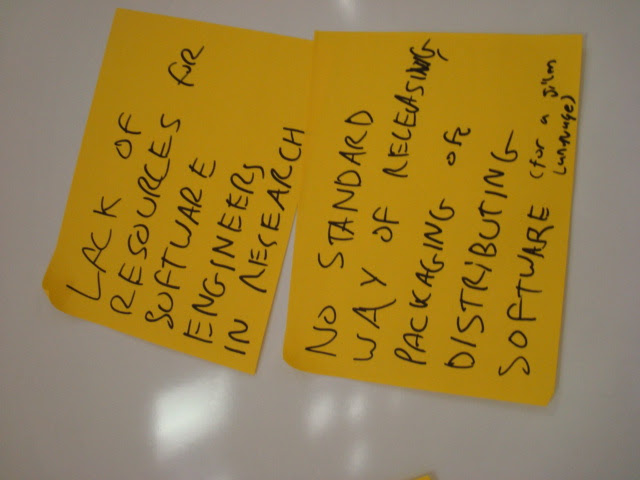 LACK OF
RESOURCES FOR
SOFTWARE
ENGINEERS
IN RESEARCH
NO STANDARD
WAY OF RELEASING,
PACKAGING OR
DISTRIBUTING
SOFTWARE (for a
Language)